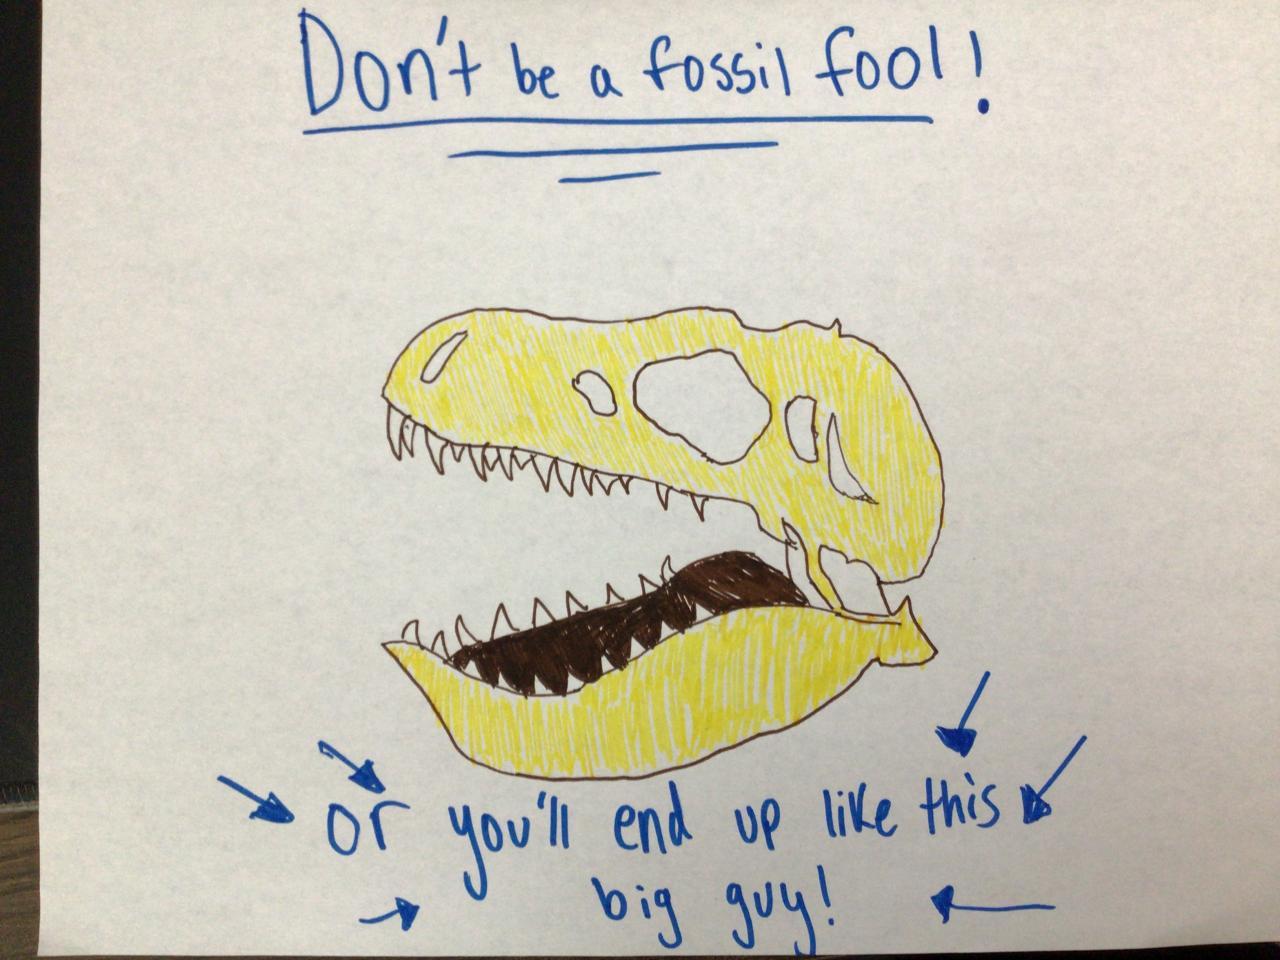 Don't be a fossil fool!
or you'll end up like this
big guy!